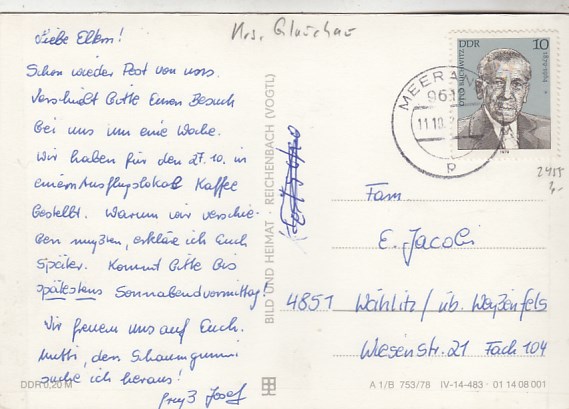 Krs. Glauchau
Liebe Eltern!
Schon wieder Post von uns.
Verschiebt bitte Euren Besuch
bei uns um eine Woche.
Wir haben für den 27.10. in
einem Ausflugslokal Kaffee
bestellt. Warum wir verschie-
ben mußten, erkläre ich Euch
später. Kommt bitte bis
spätestens Sonnabendvormittag!
Wir freuen uns auf Euch.
Mutti, den Schaumgummi
suche ich heraus!
Gruß Josef
DDR 0,20 M
BILD UND HEIMAT · REICHENBACH (VOGTL)
DDR 10
OTTO BUCHWITZ
MEERANE
961
11.10.
Fam.
E. Jacobi
4851 Wählitz / üb. Weißenfels
Wiesenstr. 21 Fach 104
A 1/B 753/78 IV-14-483 · 01 14 08 001